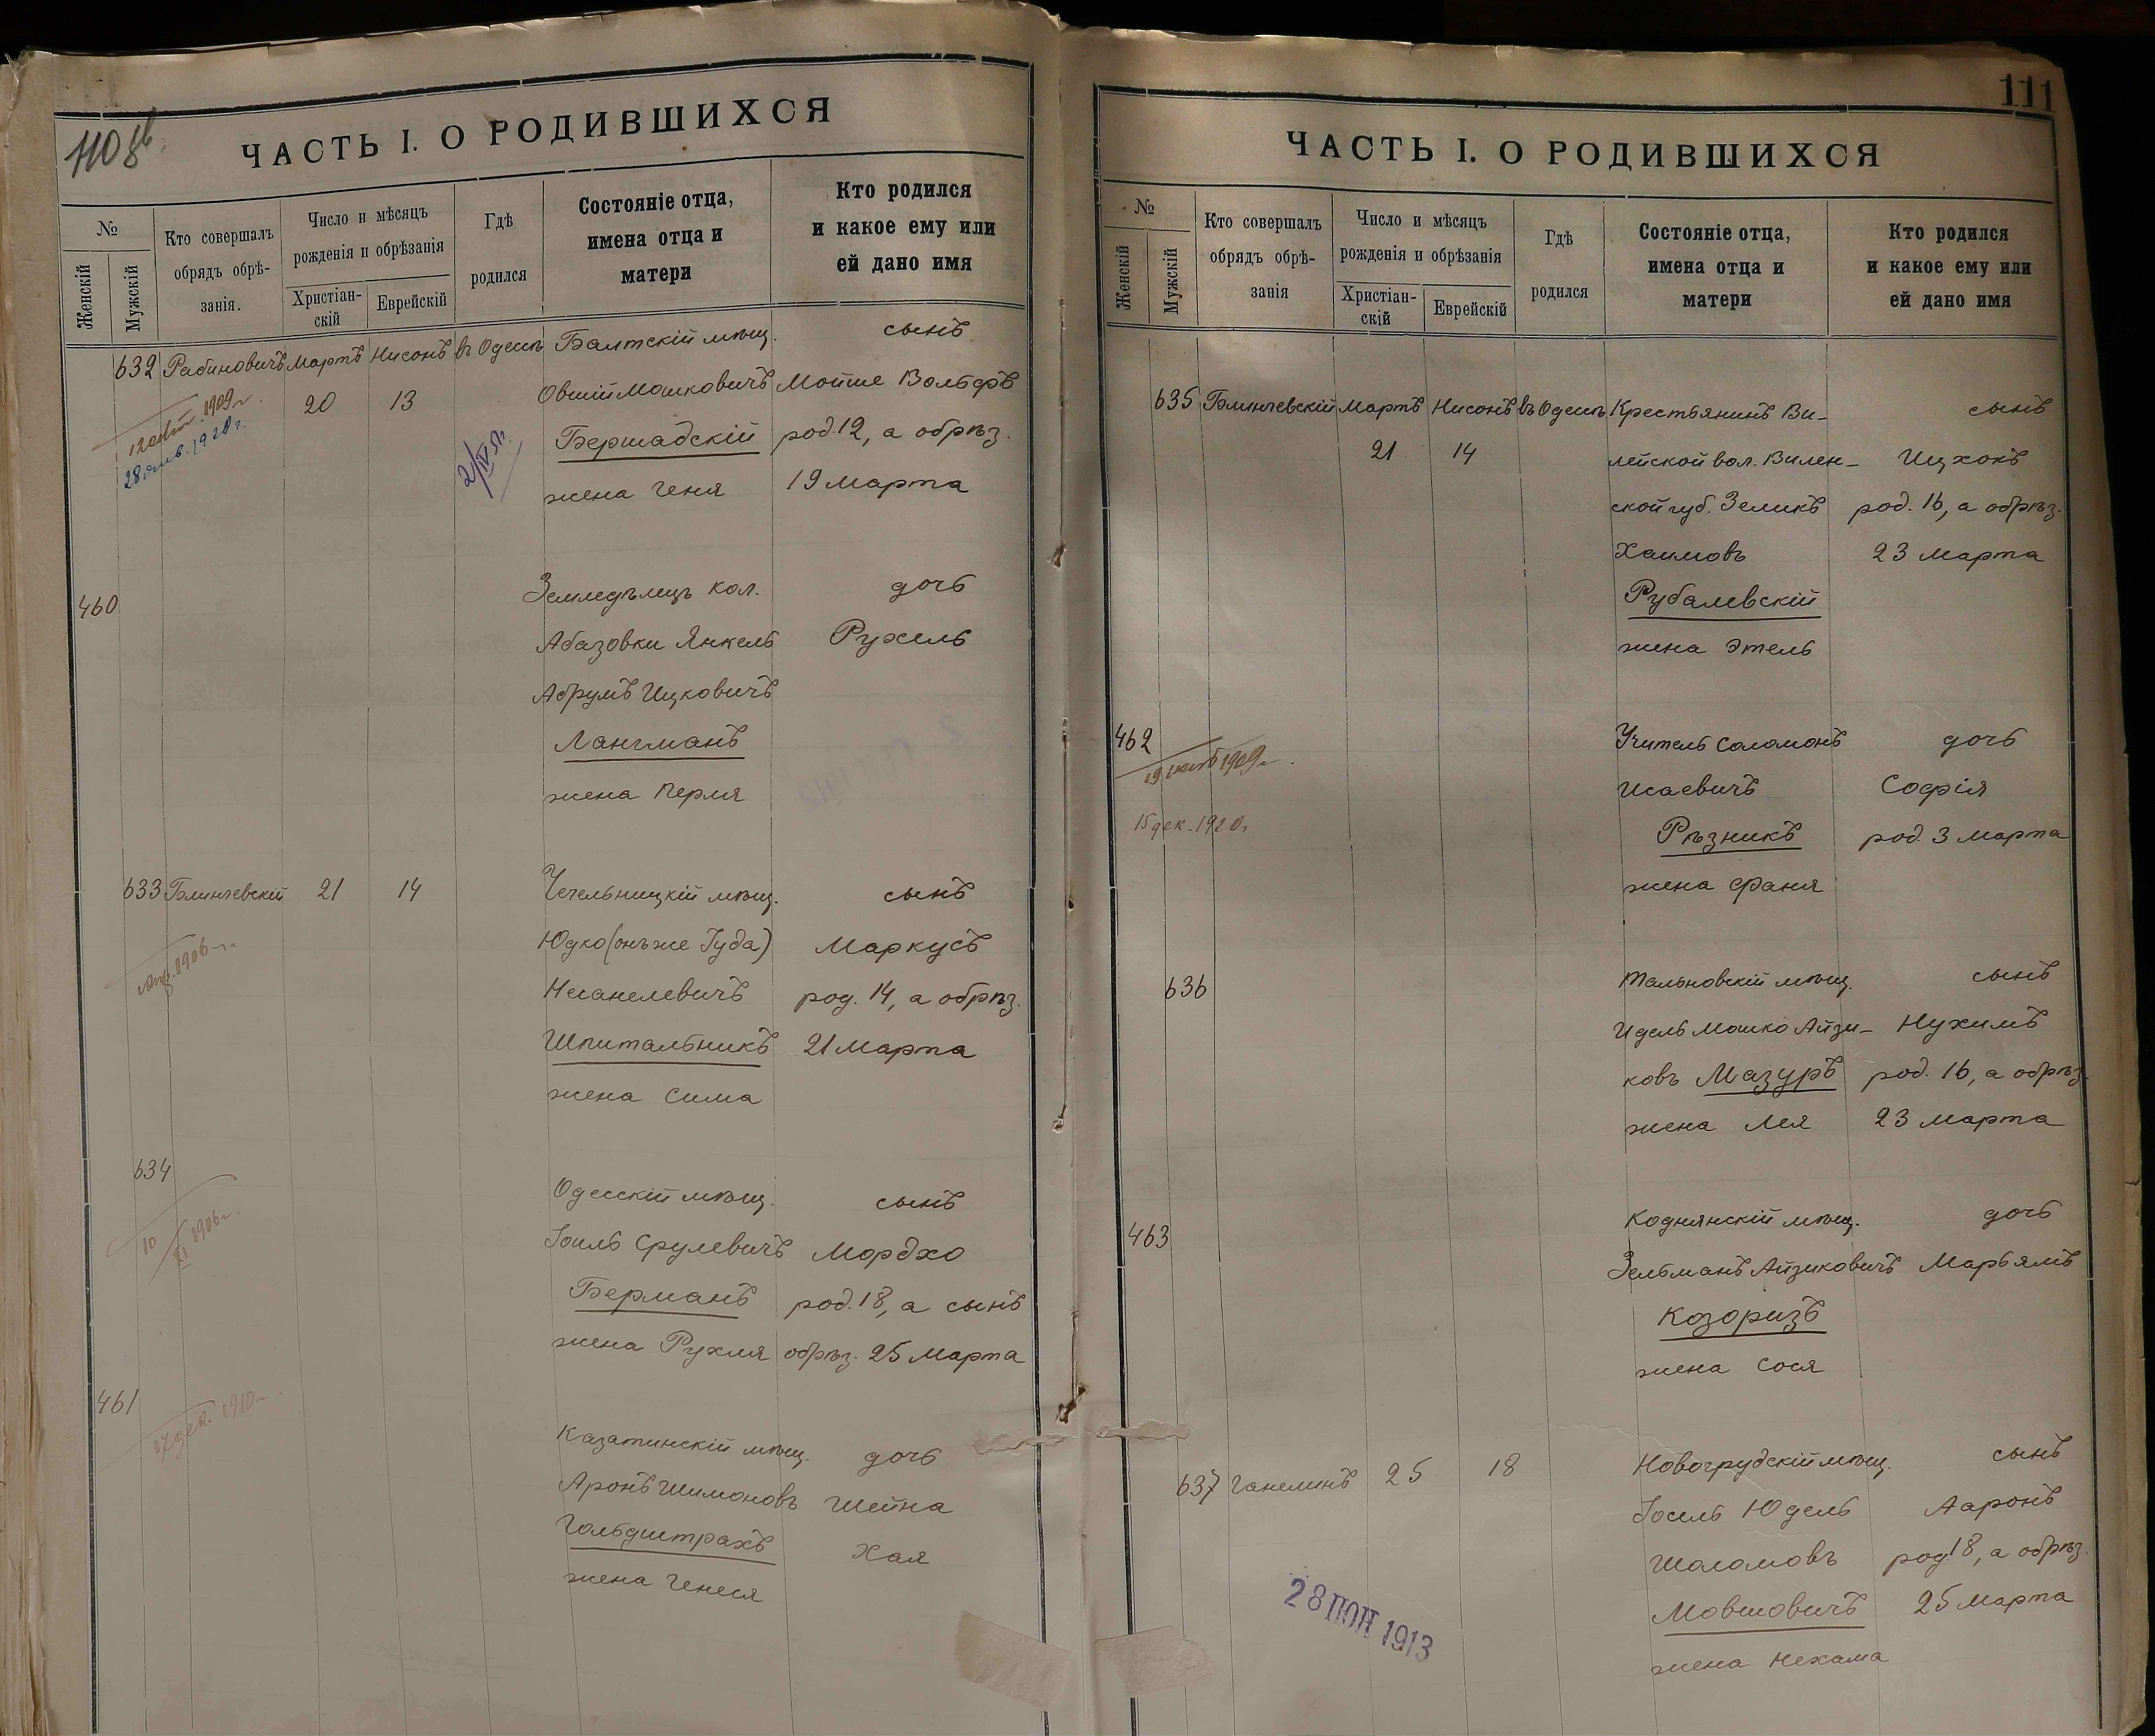 110 об.
ЧАСТЬ I. О РОДИВШИХСЯ
№
Женскій
Мужскій
Кто совершалъ
обрядъ обрѣ-
занія.
Число и мѣсяцъ
рожденія и обрѣзанія
Христіан-
скій
Еврейскій
Гдѣ
родился
Состояніе отца,
имена отца и
матери
Кто родился
и какое ему или
ей дано имя
632 Рабиновичъ Мартъ Нисонъ въ Одессѣ Балтскій мѣщ. сынъ
20 13 Овшій Мошковичъ Мойше Вольфъ
1909 г.
28 1920 г.
2/IV
Бершадскій род. 12, а обрѣз.
жена Геня 19 Марта
460 Земледѣлецъ кол. дочь
Абазовки Янкель Рухель
Абрумъ Ицковичъ
Лангманъ
жена Перля
633 Блинчевскій 21 14 Чечельницкій мѣщ. сынъ
Юдко (онъ же Іуда) Маркусъ
1906 г.
Несанелевичъ род. 14, а обрѣз.
Шпитальникъ 21 Марта
жена Сима
634 Одесскій мѣщ. сынъ
10/XI 1906 г.
Іоиль Срулевичъ Мордхо
Берманъ род. 18, а сынъ
жена Рухля обрѣз. 25 Марта
461 Казатинскій мѣщ. дочь
17 дек. 1910 г.
Аронъ Шимоновъ Шейна
Гольдштрахъ Хая
жена Генеся
111
ЧАСТЬ I. О РОДИВШИХСЯ
№
Женскій
Мужскій
Кто совершалъ
обрядъ обрѣ-
занія
Число и мѣсяцъ
рожденія и обрѣзанія
Христіан-
скій
Еврейскій
Гдѣ
родился
Состояніе отца,
имена отца и
матери
Кто родился
и какое ему или
ей дано имя
635 Блинчевскій Мартъ Нисонъ въ Одессѣ Крестьянинъ Ви- сынъ
21 14 лейской вол. Вилен- Ицхокъ
ской губ. Зеликъ род. 16, а обрѣз.
Хаимовъ 23 Марта
Рубалевскій
жена Этель
462 Учитель Соломонъ дочь
19 1909 г.
Исаевичъ Софія
15 дек. 1920 г.
Рѣзникъ род. 3 Марта
жена Фаня
636 Тальновскій мѣщ. сынъ
Идель Мошко Айзи- Нухимъ
ковъ Мазуръ род. 16, а обрѣз.
жена Лея 23 Марта
463 Коднянскій мѣщ. дочь
Зельманъ Айзиковичъ Марьямъ
Козоризъ
жена Сося
637 Ганелинъ 25 18 Новогрудскій мѣщ. сынъ
Іосель Юдель Ааронъ
Шоломовъ род. 18, а обрѣз.
Мовшовичъ 25 Марта
жена Нехама
28 1913